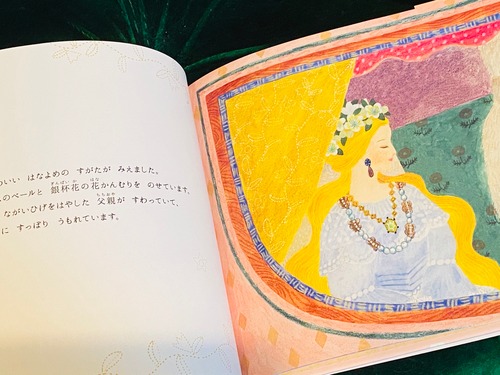 いい はなよめの すがたが みえました。
のベールと 銀杯花の花かんむりを のせています。
ながいひげをはやした 父親が すわっていて、
に すっぽり うもれています。